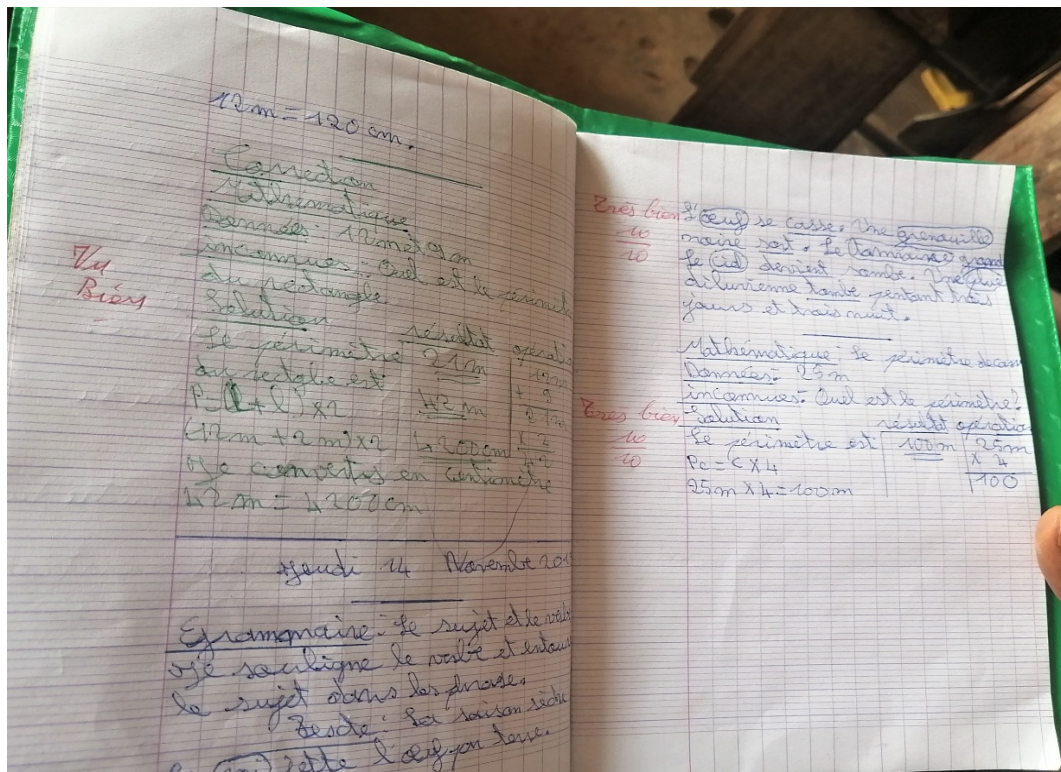 12m = 120 cm.
Correction
Mathématique
Données: 12m et 9m
inconnues: Quel est le périmèt
du rectangle
Solution
résultat opérati
Le périmètre 21m 12m
du rectgle est + 9
P=(L+l)×2 42m 21m
(12m + 2m)×2 4200cm × 2
Je convertis en centimètre
42m = 4200cm
Vu
Bien
Jeudi 14 Novembre 201
Grammaire: Le sujet et le verb
Je souligne le verbe et entour
le sujet dans les phrase.
Texte: La saison sèche
jette l'œuf par terre.
Très bien
10
10
L'œuf se casse. Une grenouille
noire sort. Le grand
Le ciel devient sombe. Une pluie
diluvienne tombe pentant trois
jours et trois nuit.
Mathématique: Le périmètre du carr
Données: 25m
inconnues: Quel est le périmètre?
Solution résultat opération
Très bien
10
10
Le périmètre est 100m 25m
Pc = C × 4 × 4
25m × 4 = 100m 100